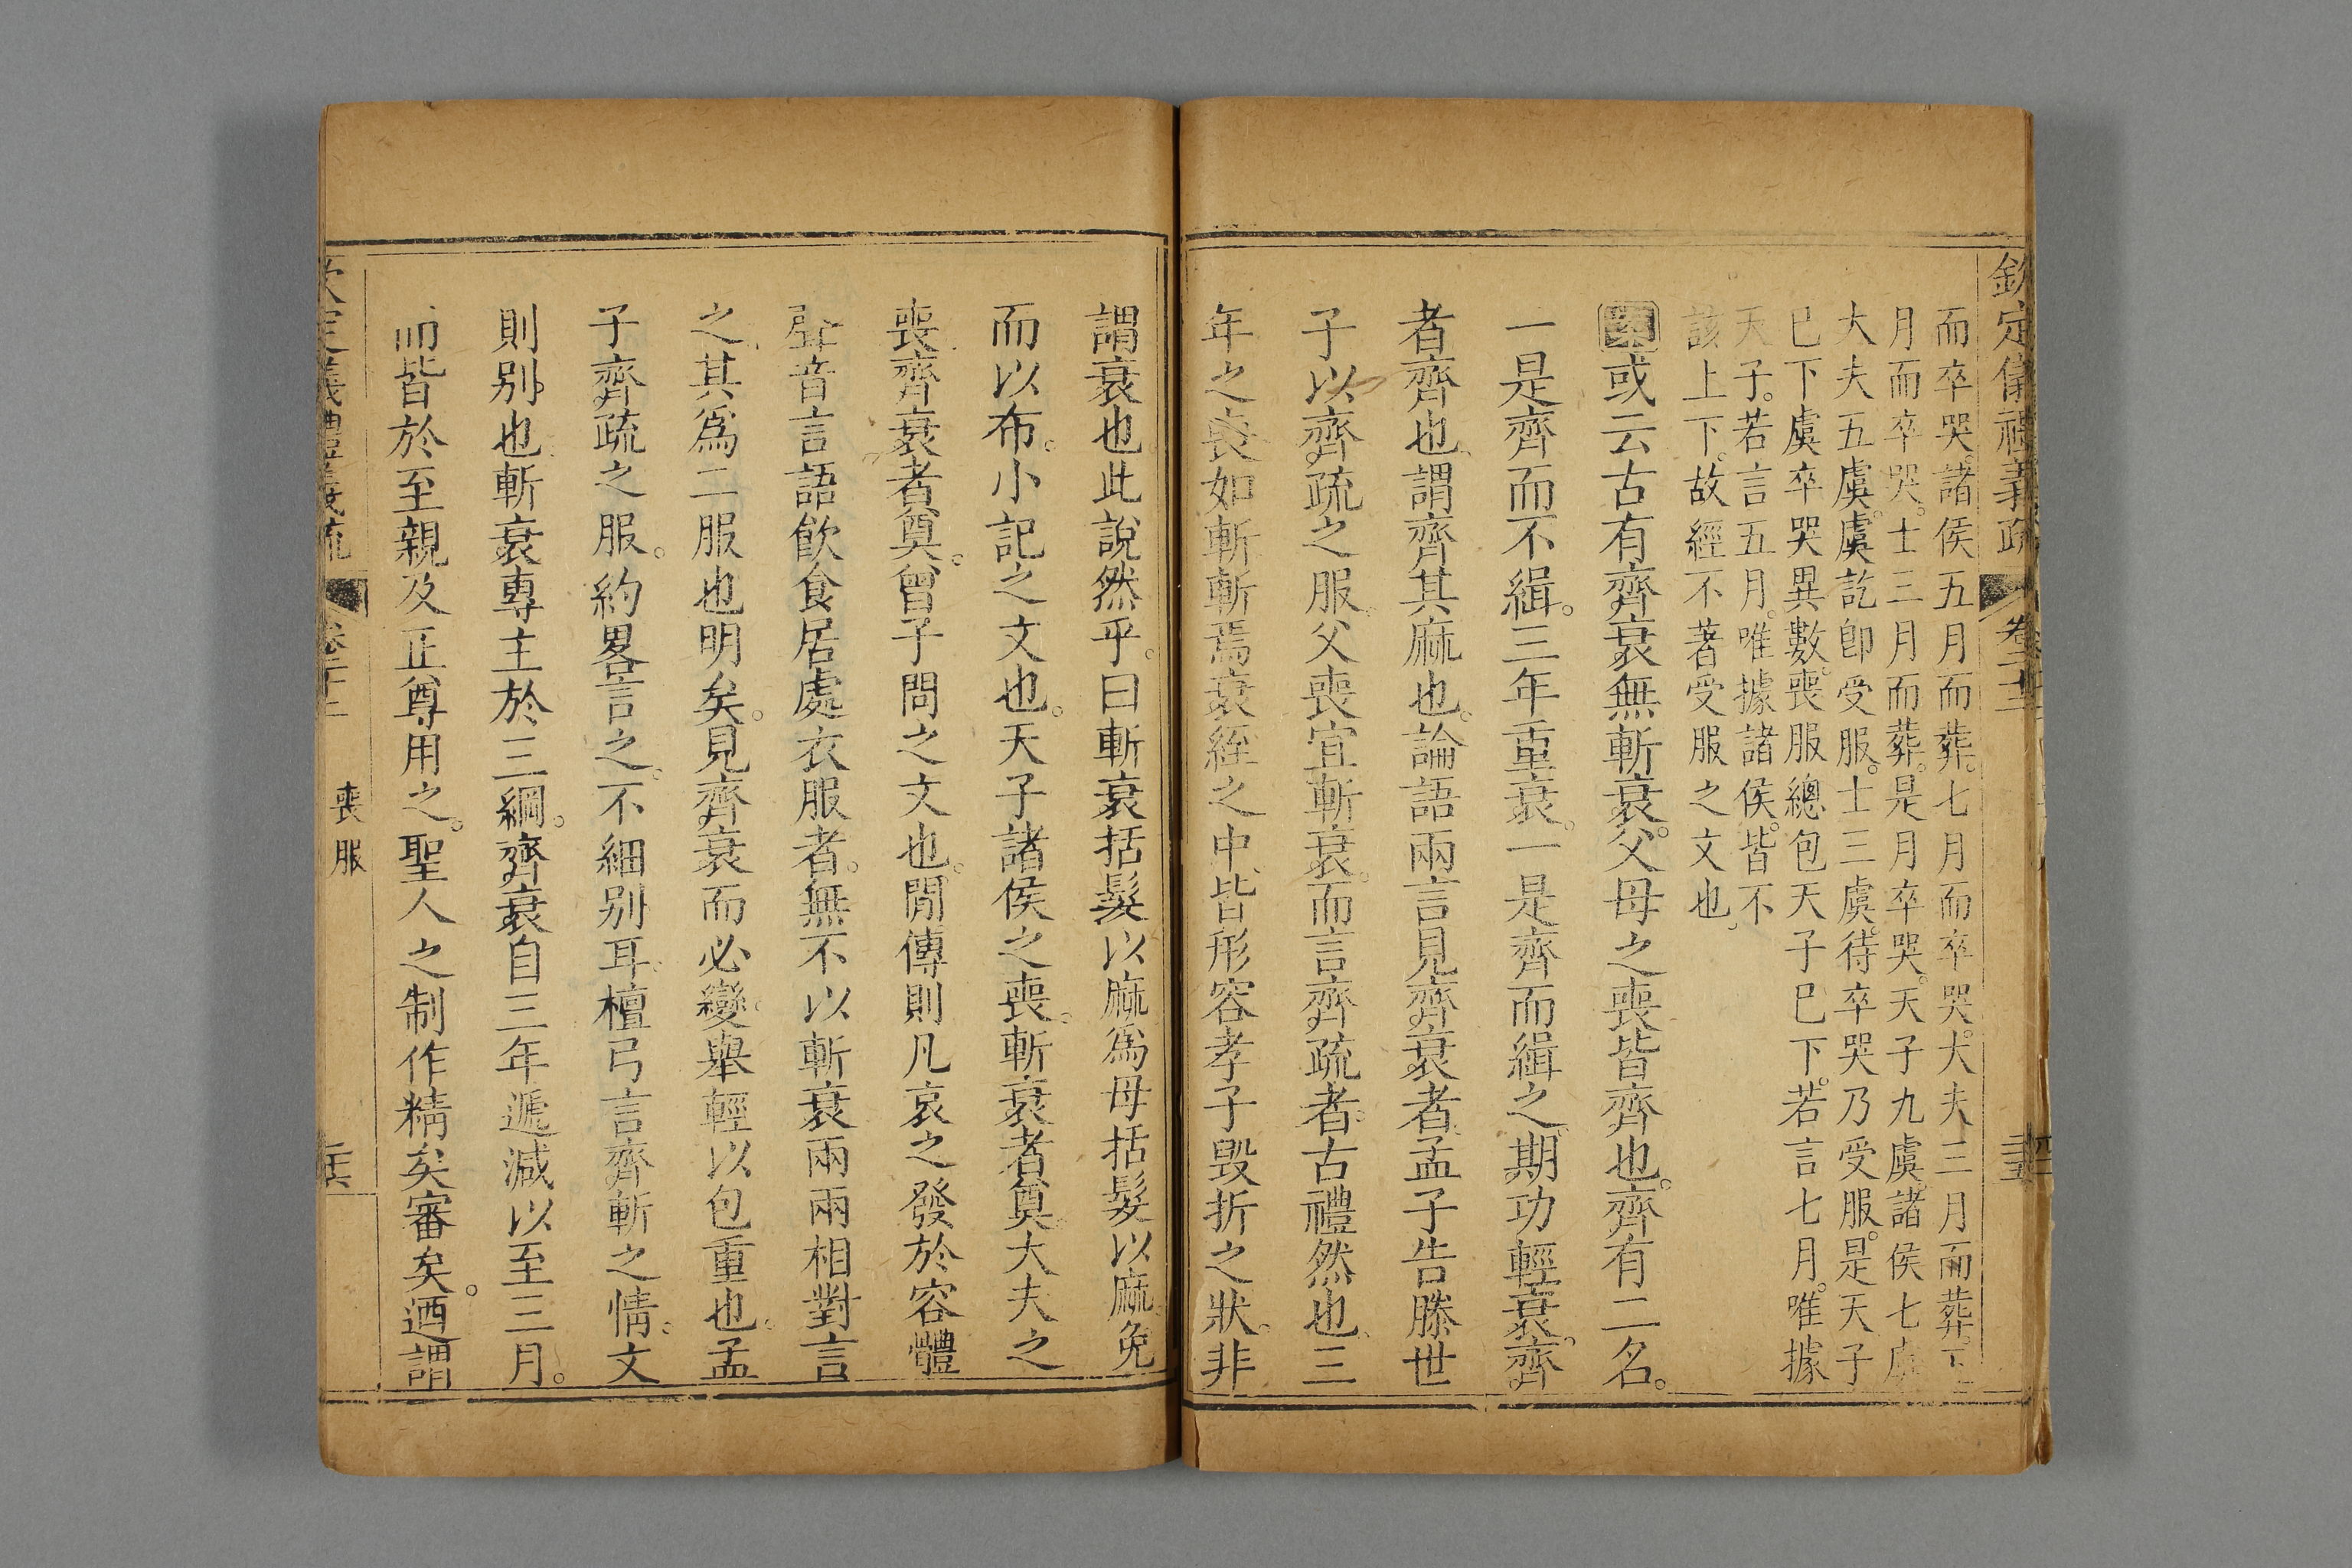 欽定儀禮義疏 卷二十二
而卒哭。諸侯五月而葬。七月而卒哭。大夫三月而葬。五
月而卒哭。士三月而葬。是月卒哭。天子九虞。諸侯七虞
大夫五虞。虞訖卽受服。士三虞。待卒哭乃受服。是天子
巳下虞卒哭異數。喪服總包天子巳下。若言七月。唯據
天子。若言五月。唯據諸侯。皆不
該上下。故經不著受服之文也
或云古有齊衰無斬衰。父母之喪皆齊也。齊有二名。
一是齊而不緝。三年重衰。一是齊而緝之。期功輕衰。齊
者齊也。謂齊其麻也。論語兩言見齊衰者孟子告滕世
子以齊疏之服。父喪宜斬衰。而言齊疏者。古禮然也。三
年之喪如斬斬焉衰絰之中。皆形容孝子毀折之狀。非
謂衰也此說然乎。曰斬衰括髮以麻爲母括髮以麻。免
而以布。小記之文也。天子諸侯之喪。斬衰者奠。大夫之
喪齊衰者奠。曾子問之文也。閒傳則凡哀之發於容體
聲音言語飮食居處衣服者。無不以斬衰兩兩相對言
之其爲二服也明矣。見齊衰而必變。舉輕以包重也。孟
子齊疏之服。約畧言之。不細别耳。檀弓言齊斬之情。文
則别也斬衰專主於三綱。齊衰自三年遞減以至三月。
而皆於至親及正尊用之。聖人之制作精矣審矣。迺謂
欽定儀禮義疏 卷二十二 喪服